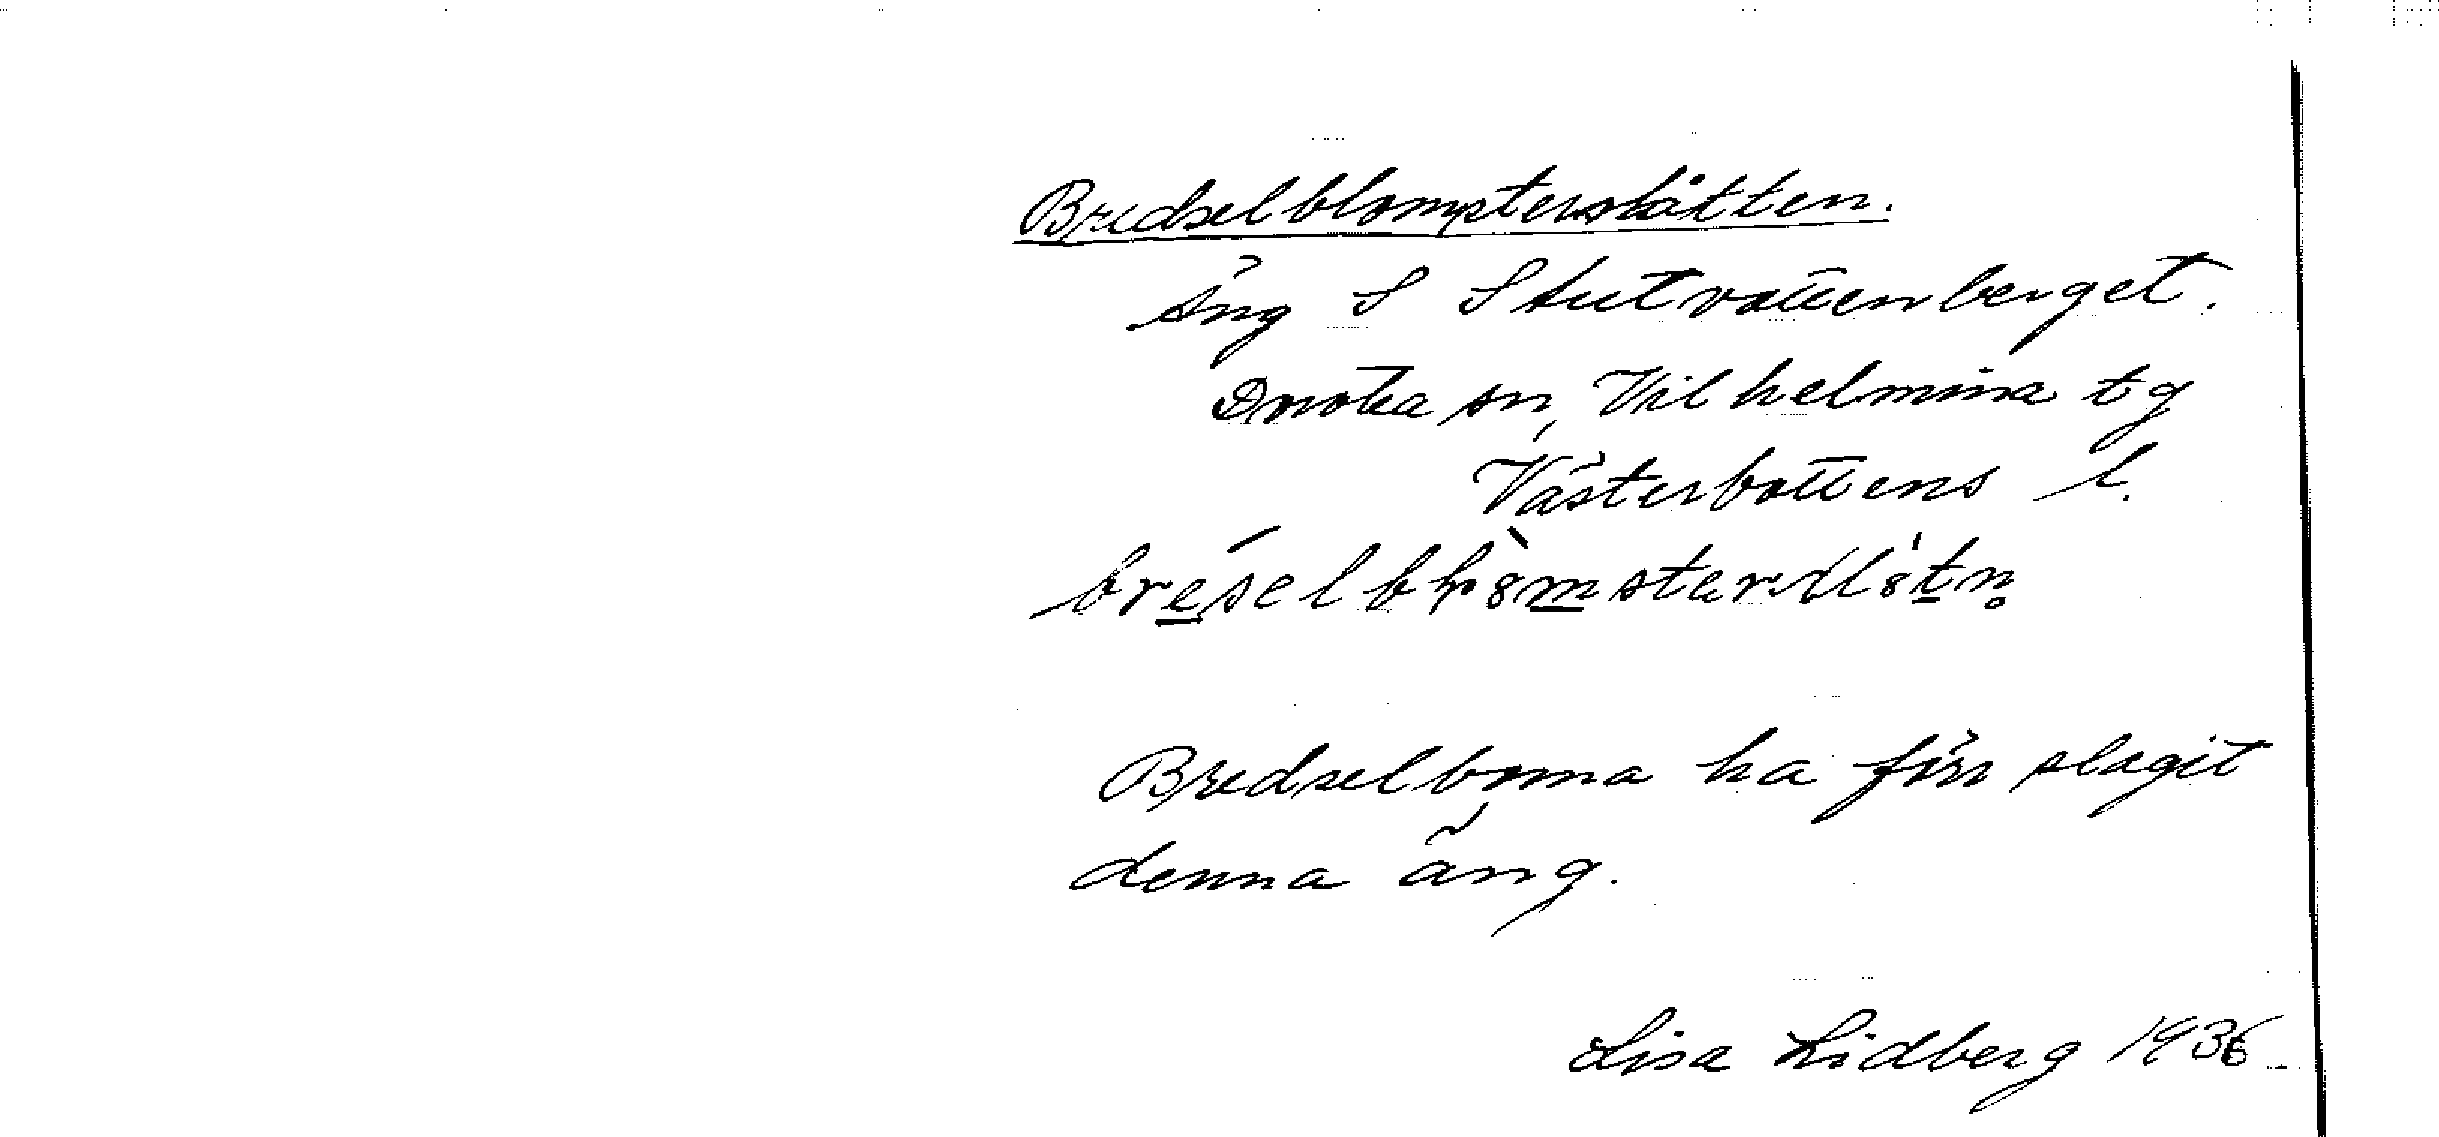 Bredselblomsterslåtten.
Äng S Stutvattenberget.
Dorotea sn, Vilhelmina tg
Västerbottens l.
Bredselborna ha förr slagit
denna äng.
Lisa Lidberg 1936